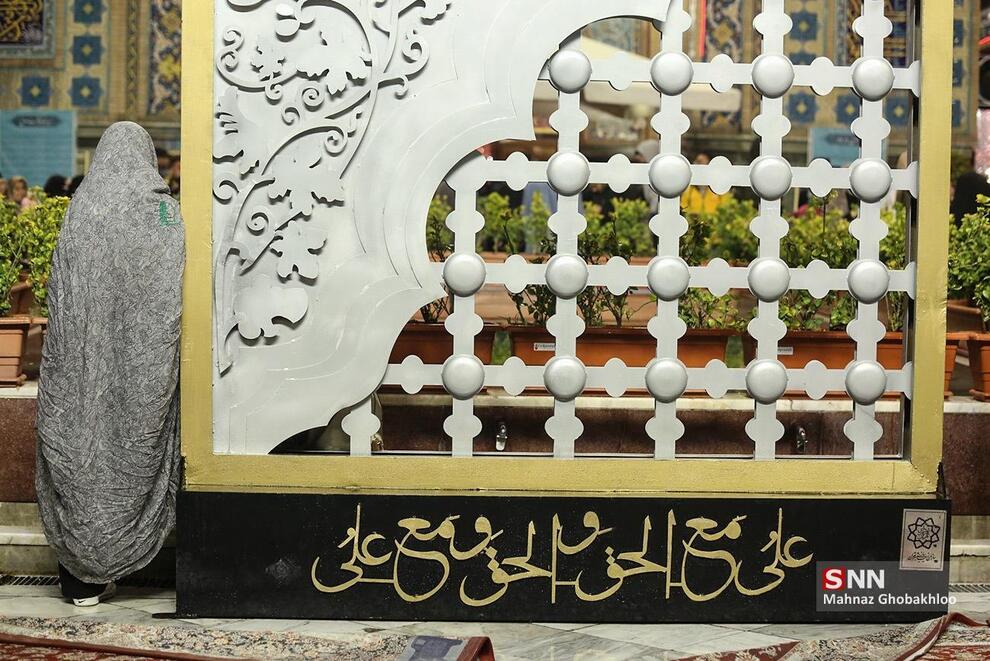 علی مع الحق و الحق مع علی
SNN
Mahnaz Ghobakhloo